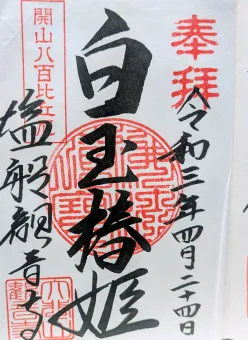 奉拝
令和三年四月二十四日
白玉椿姫
開山八百比丘
塩船観音寺